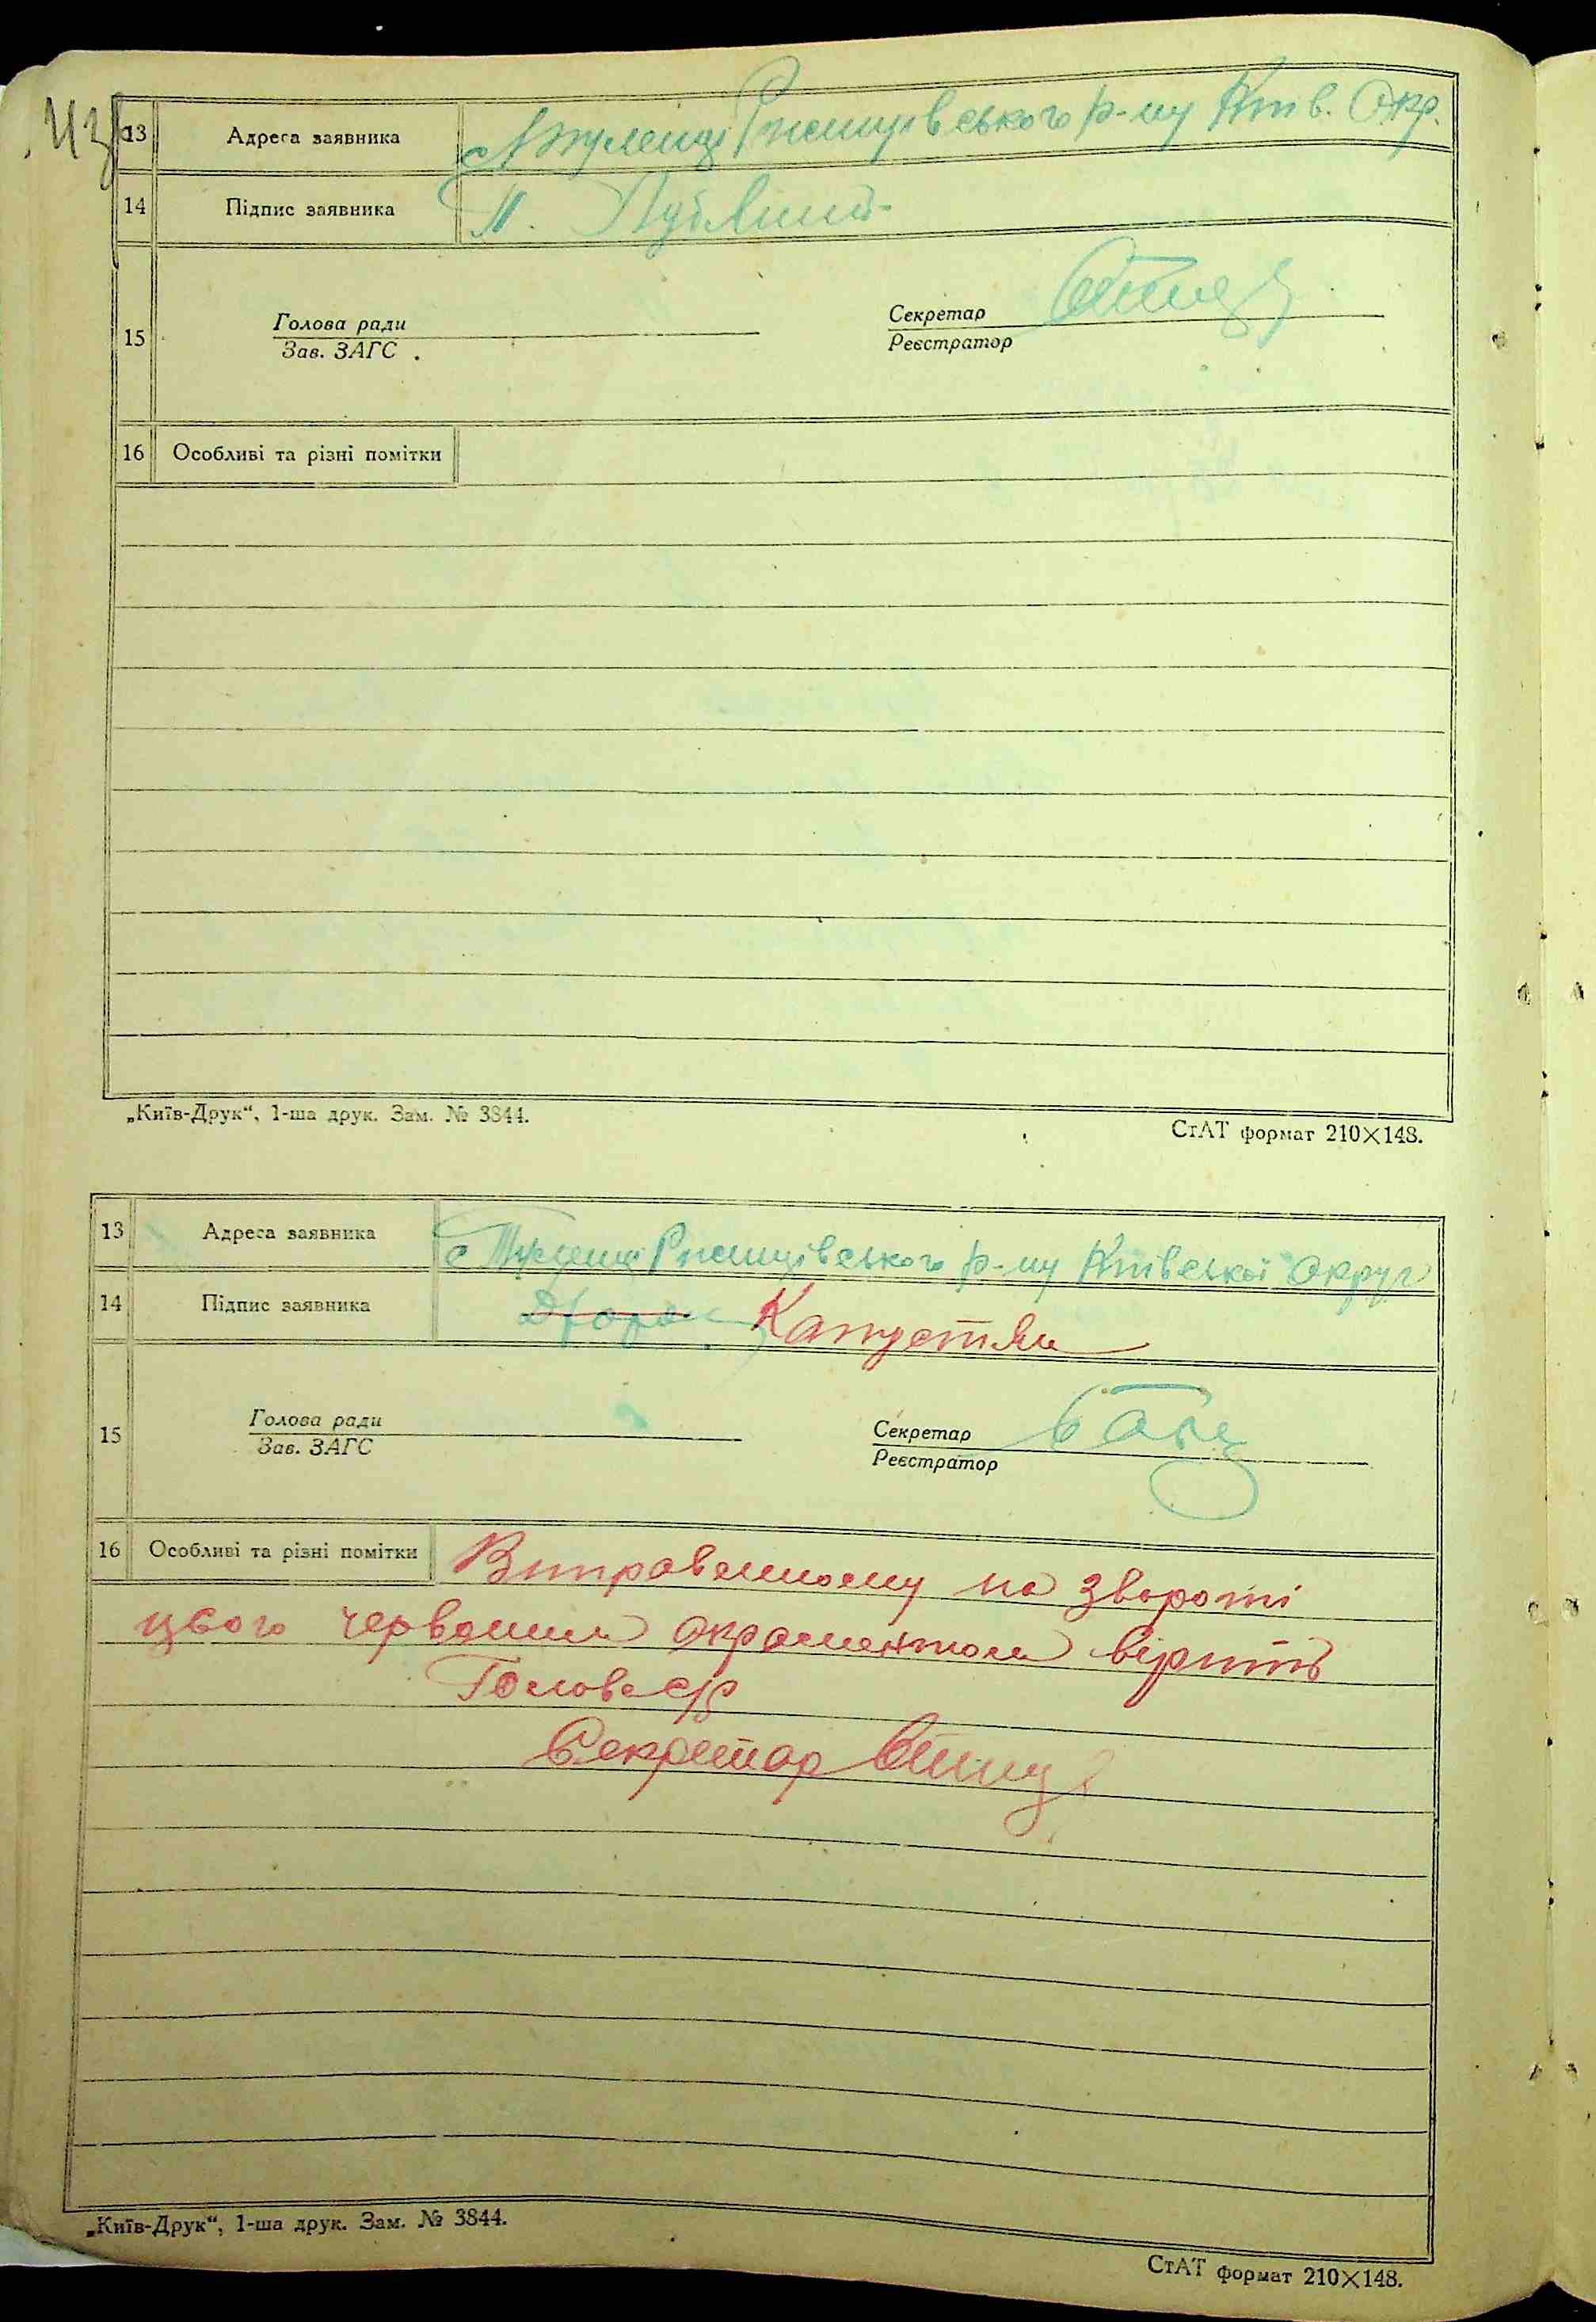 43
13 Адреса заявника с Тулинці Ржищівського р-ну Київ. Окр.
14 Підпис заявника П.
15 Голова ради Секретар
Зав. ЗАГС Реєстратор
16 Особливі та різні помітки
„Київ-Друк“, 1-ша друк. Зам. № 3844.
СтАТ формат 210×148.
13 Адреса заявника с Ржищівського р-ну Київської округ
14 Підпис заявника Капустян
15 Голова ради Секретар
Зав. ЗАГС Реєстратор
16 Особливі та різні помітки Виправленному на звороті
цього червоним вірить
Голова с/р
Секретар
„Київ-Друк“, 1-ша друк. Зам. № 3844.
СтАТ формат 210×148.